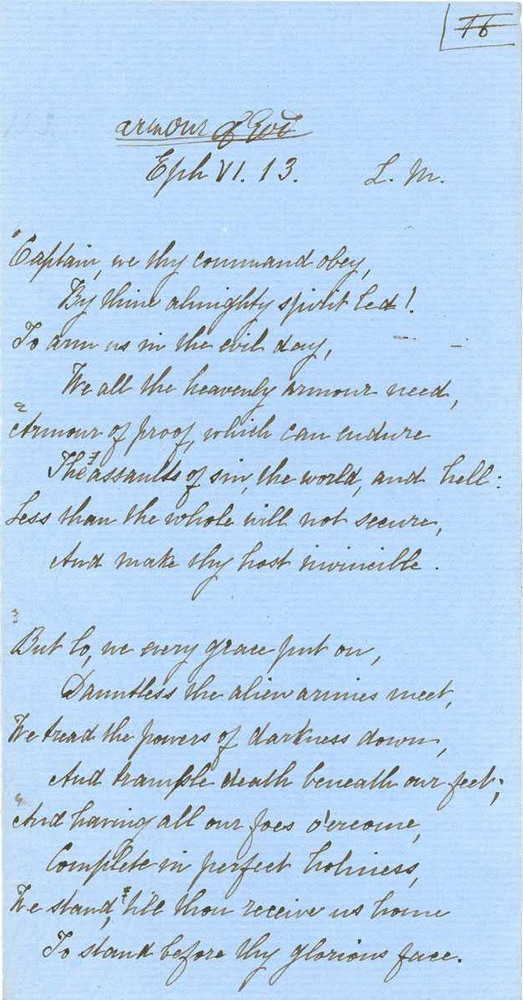 armour of God
Eph VI. 13. L. M.
Captain, we thy command obey,
By thine almighty spirit led!
To arm us in the evil day,
We all the heavenly armour need,
2
Armour of proof, which can endure
The assaults of sin, the world, and hell:
Less than the whole will not secure,
And make thy host invincible.
3
But lo, we every grace put on,
Dauntless the alien armies meet,
We tread the powers of darkness down,
And trample death beneath our feet;
And having all our foes o'ercome,
Complete in perfect holiness,
We stand, till thou receive us home
To stand before thy glorious face.